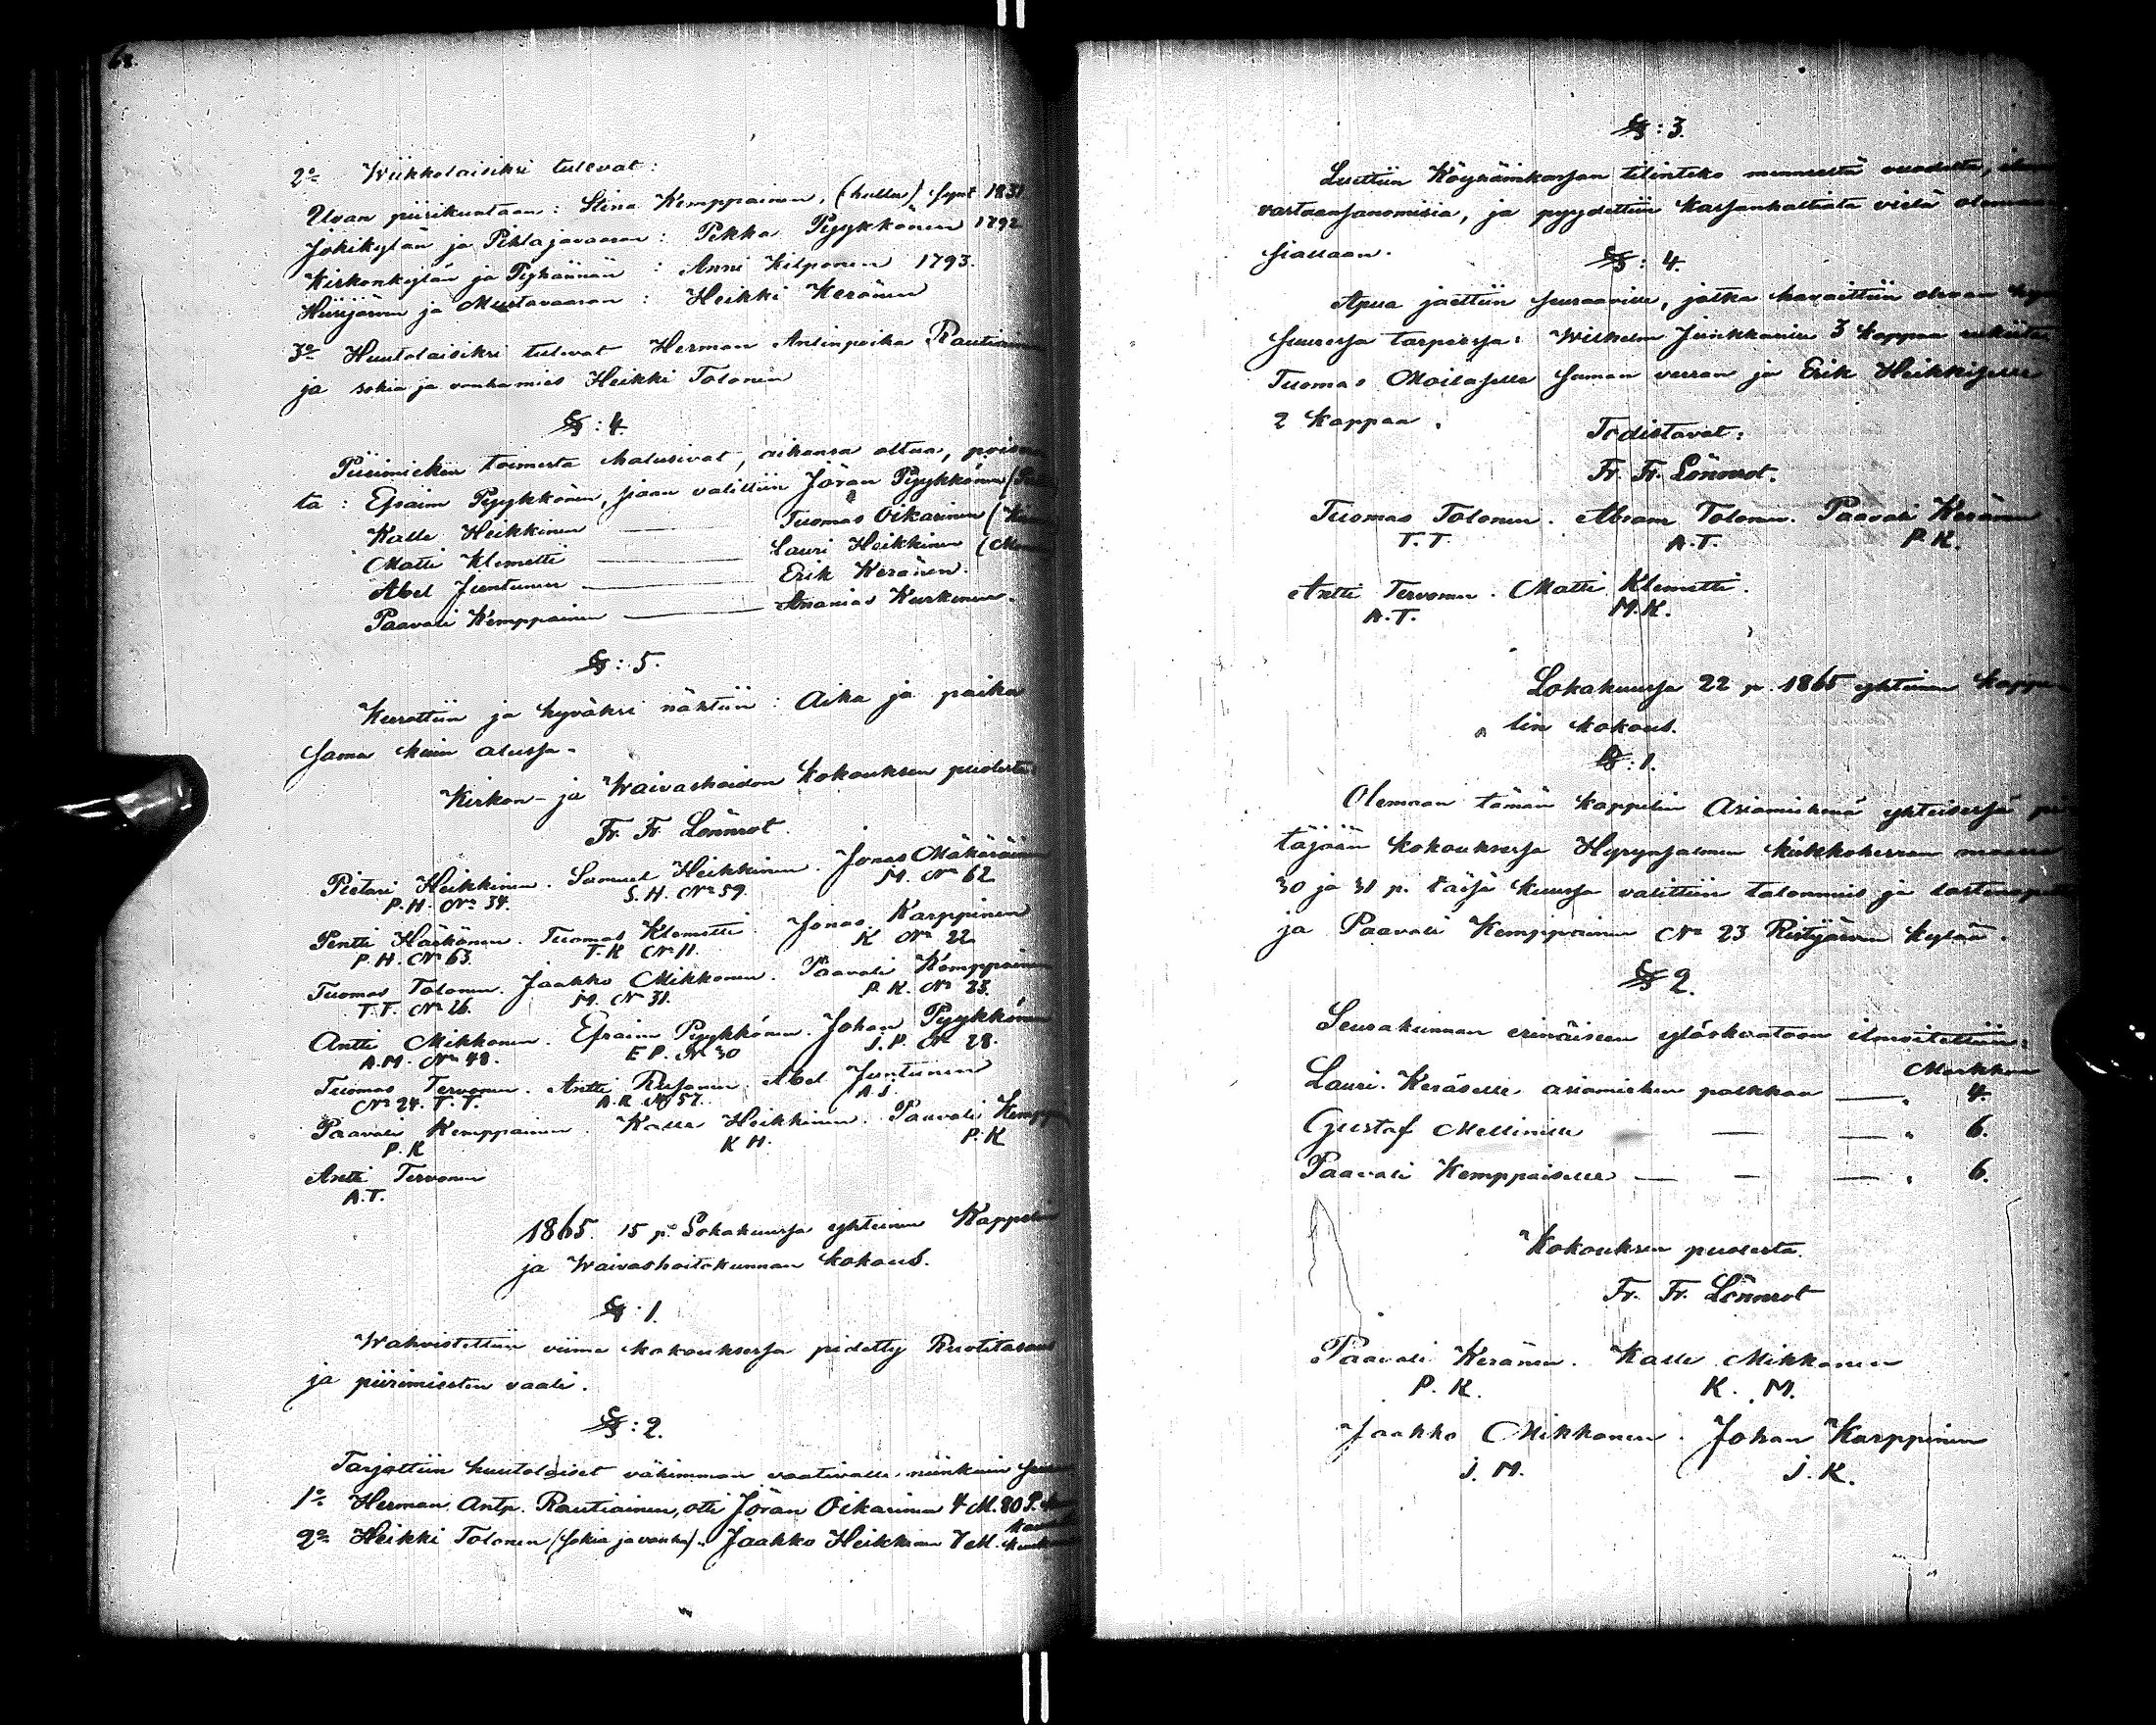 2:o Wiikkolaisiksi tulevat:
Uvan piirikuntaan: Stina Kemppainen, (hullu) synt 1831
Jokikylän ja Pihlajavaaran: Pekka Pyykkönen 1792
Kirkonkylän ja Pyhännän: Anni Kilponen 1793.
Hiisijärven ja Mustavaaran: Heikki Keränen
3:o Huutolaisiksi tulevat Herman Antinpoika Rautiainen
ja sokia ja vanhamies Heikki Tolonen
§: 4.
Piirimiehen toimesta halusivat, aikansa oltua,
ta: Efraim Pyykkönen, siaan valittiin Jöran Pyykkönen
Kalle Heikkinen — Tuomas Oikarinen
Matti Klemetti — Lauri Heikkinen
Abel Juntunen — Erik Keränen.
Paavali Kemppainen — Ananias Kurkinen.
§: 5.
Kerrottiin ja hyväksi nähtiin: Aika ja paika
sama kuin alussa.
Kirkon- ja Waivashoidon kokouksen puolesta
Fr. Fr. Lönnrot.
Pietari Heikkinen. Samuel Heikkinen. Jonas Mäkäräinen
P. H. No 34. S. H. No 59. M. No 62
Pentti Härkönen. Tuomas Klemetti. Jonas Karppinen
P. H. No 63. T. K No 11. K No 22
Tuomas Tolonen. Jaakko Mikkonen. Paavali Kemppainen
T. T. No 26. M. No 31. P. K. No 23.
Antti Mikkonen. Efraim Pyykkönen. Johan Pyykkönen
A. M. No 48. E P. No 30 J. P. No 28.
Tuomas Tervonen. Antti Rusanen. Abel Juntunen
No 24. T. T. A. R No 57. A J.
Paavali Kemppainen. Kalle Heikkinen. Paavali Kempp
P. K K H. P. K
Antti Tervonen
A. T.
1865. 15 p. Lokakuussa yhteinen Kappelin
ja Waivashoitokunnan kokous.
§: 1.
Wahvistettiin viime kokouksessa pidetty Ruotitasaus
ja piirimiesten vaali.
§: 2.
Tarjottiin huutolaiset vähimmän vaativalle, niinkuin
1:o Herman Antp. Rautiainen, otti Jöran Oikarinen 4 M. 80 P.
2:o Heikki Tolonen (sokia ja vanha). Jaakko Heikkinen 7 M.
§: 3.
Luettiin Köyhäinkassan tilinteko menneestä vuodesta, ilman
vastaansanomisia, ja pyydettiin kassanhaltiata vielä olemaan
siallaan.
§: 4.
Apua jaettiin seuraaville, jotka havaittiin olevan
suuressa tarpeessa: Wilhelm Junkkarille 3 kappaa rukiita
Tuomas Moilaselle saman verran ja Erik Heikkiselle
2 kappaa.
Todistavat:
Fr. Fr. Lönnrot.
Tuomas Tolonen. Abram Tolonen. Paavali Keränen
T. T. A. T. P. K.
Antti Tervonen. Matti Klemetti.
A. T. M. K.
Lokakuussa 22 p. 1865 yhteinen kappe
lin kokous.
§: 1.
Olemaan tämän kappelin Asiamiehenä yhteisessä
täjään kokouksessa Hyrynsalmen kirkkoherran
30 ja 31 p. tässä kuussa valittiin talonmies ja
ja Paavali Kemppainen No 23 Ristijärven kylää.
§ 2.
Seurakunnan erinäiseen ylöskantoon ilmoitettiin:
Markkaa
Lauri Keräselle asiamiehen palkkaa — " 4.
Gustaf Mellinille — — " 6.
Paavali Kemppaiselle — — — " 6.
Kokouksen puolesta.
Fr. Fr. Lönnrot
Paavali Keränen. Kalle Mikkonen
P. K. K. M.
Jaakko Mikkonen. Johan Karppinen
J. M. J. K.